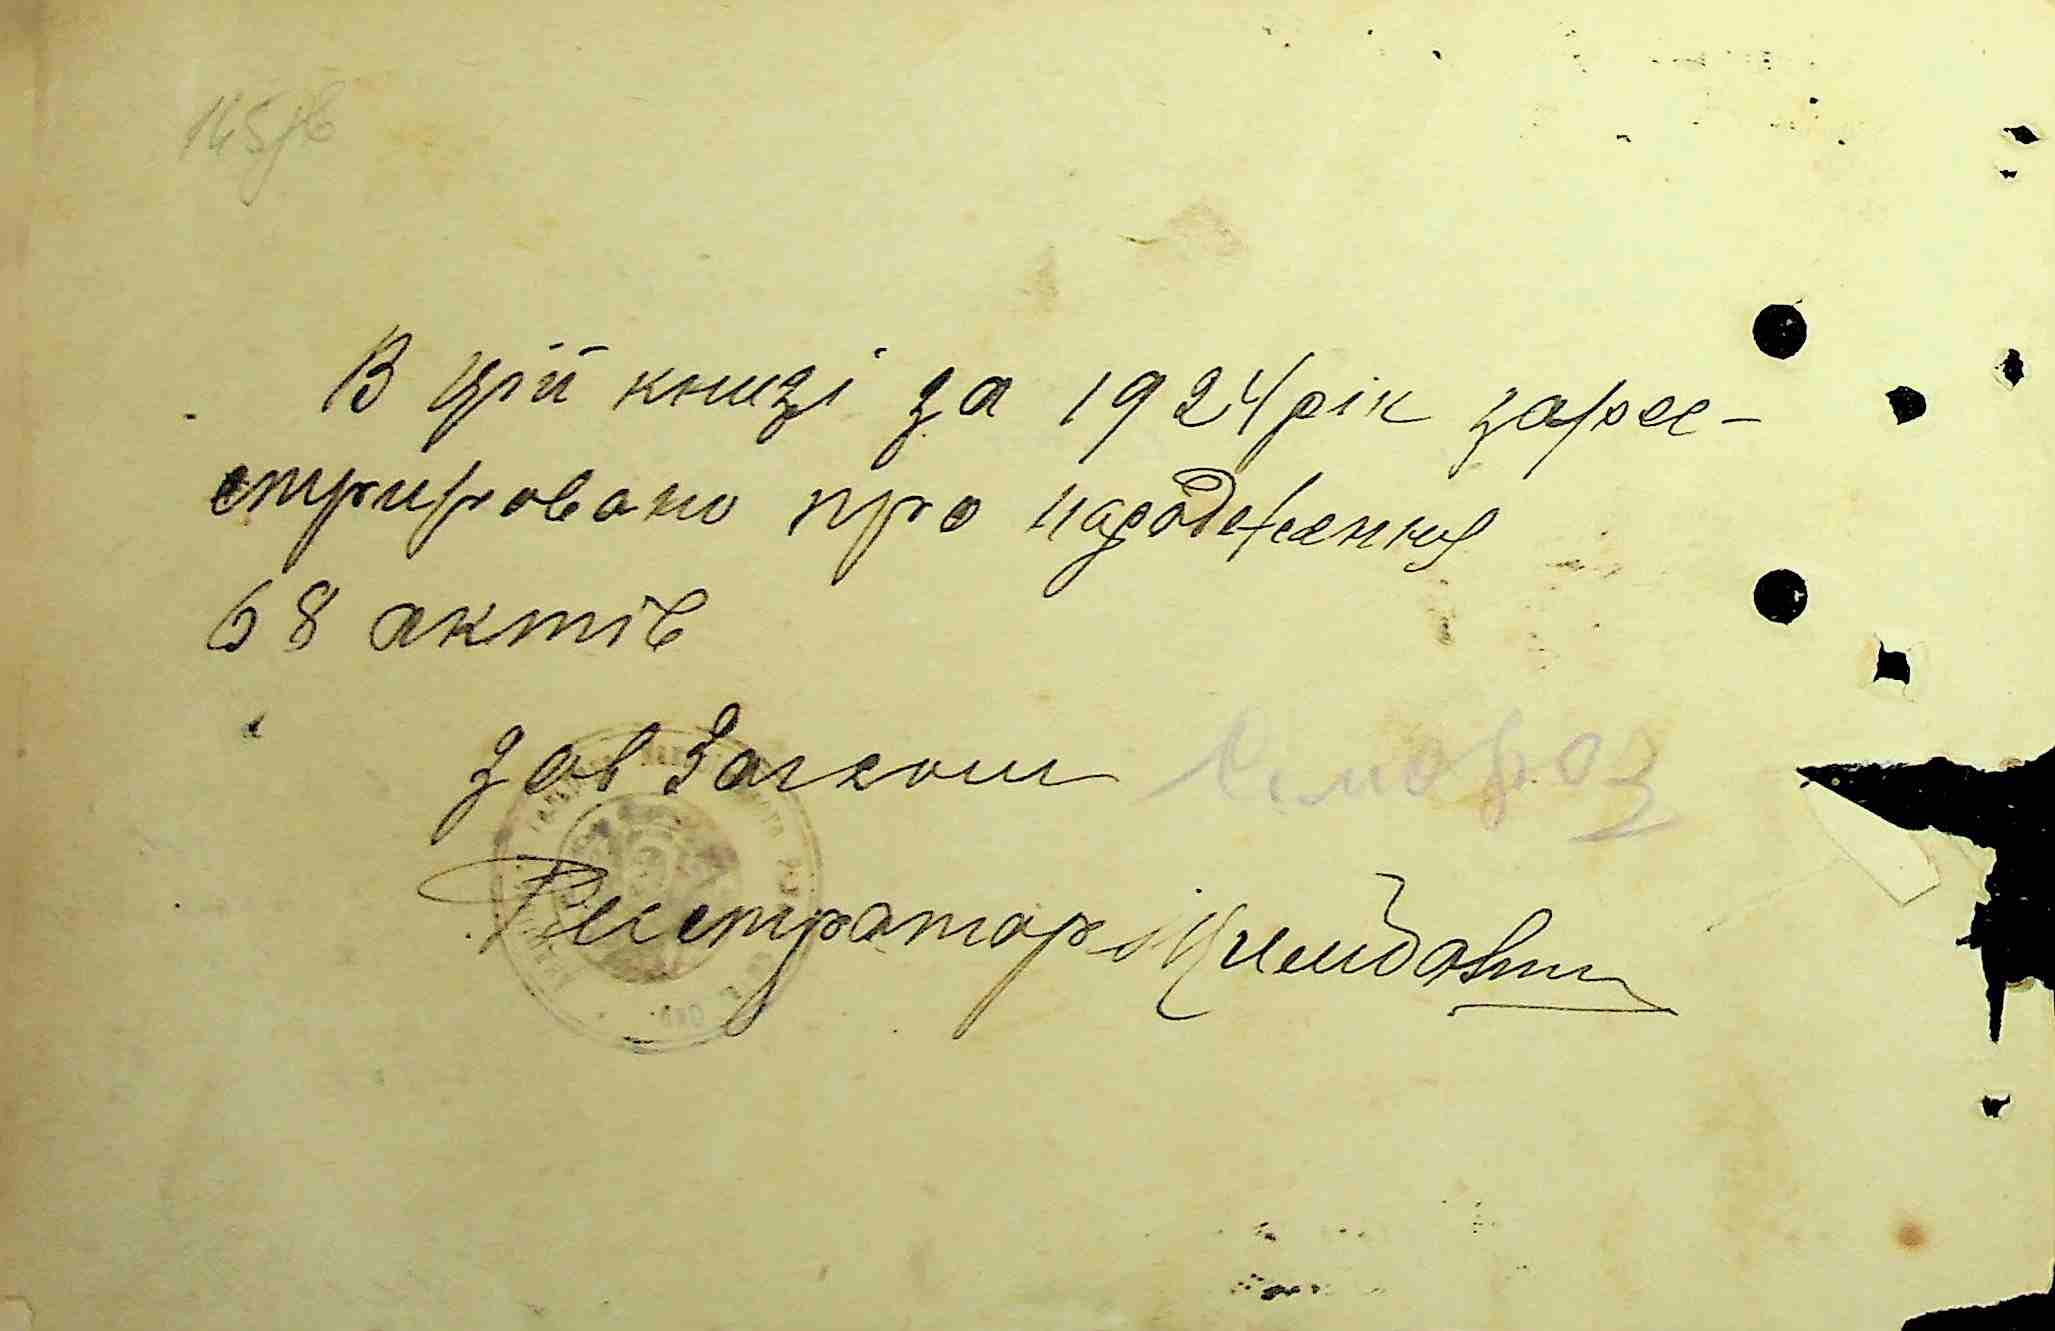 145
В цій книзі за 1924 рік зарее-
стрировано про народження
68 актів
Зав Загсом Сімороз
Реестратор